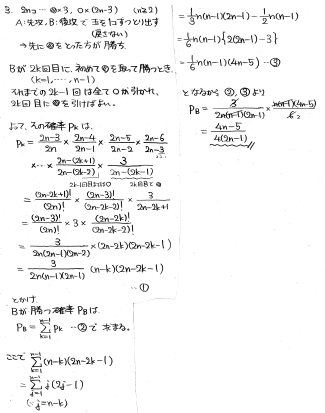 3. 2nコ … ◎×3, ○×(2n-3) (n≧2)
A:先攻, B:後攻 で 玉を1コずつとり出す
(戻さない)
→先に◎をとった方が勝ち
Bが 2k回目に, 初めて◎を取って勝つとき,
(k=1, …, n-1)
それまでの 2k-1 回は全て○が引かれ,
2k回目に◎を引けばよい.
よって, その確率 Pk は,
Pk = 2n-3/2n × 2n-4/2n-1 × 2n-5/2n-2 × 2n-6/2n-3
×…× 2n-(2k+1)/2n-(2k-2) × 3/2n-(2k-1)
2k-1回目まで○ 2k回目で◎
= (2n-2k+1)!/(2n)! × (2n-3)!/(2n-2k-2)! × 3/2n-2k+1
= (2n-3)!/(2n)! × 3 × (2n-2k)!/(2n-2k-2)!
= 3/2n(2n-1)(2n-2) × (2n-2k)(2n-2k-1)
= 3/2n(n-1)(2n-1) (n-k)(2n-2k-1)
…①
とかけ
Bが 勝つ確率 PB は
PB = Σ[k=1, n-1] Pk …② で 求まる.
ここで Σ[k=1, n-1] (n-k)(2n-2k-1)
= Σ[j=1, n-1] j(2j-1)
(∵ j=n-k)
= 1/3 n(n-1)(2n-1) - 1/2 n(n-1)
= 1/6 n(n-1){2(2n-1)-3}
= 1/6 n(n-1)(4n-5) …③
となるから ②, ③ より
PB = 3/2n(n-1)(2n-1) × n(n-1)(4n-5)/6
= 4n-5/4(2n-1)